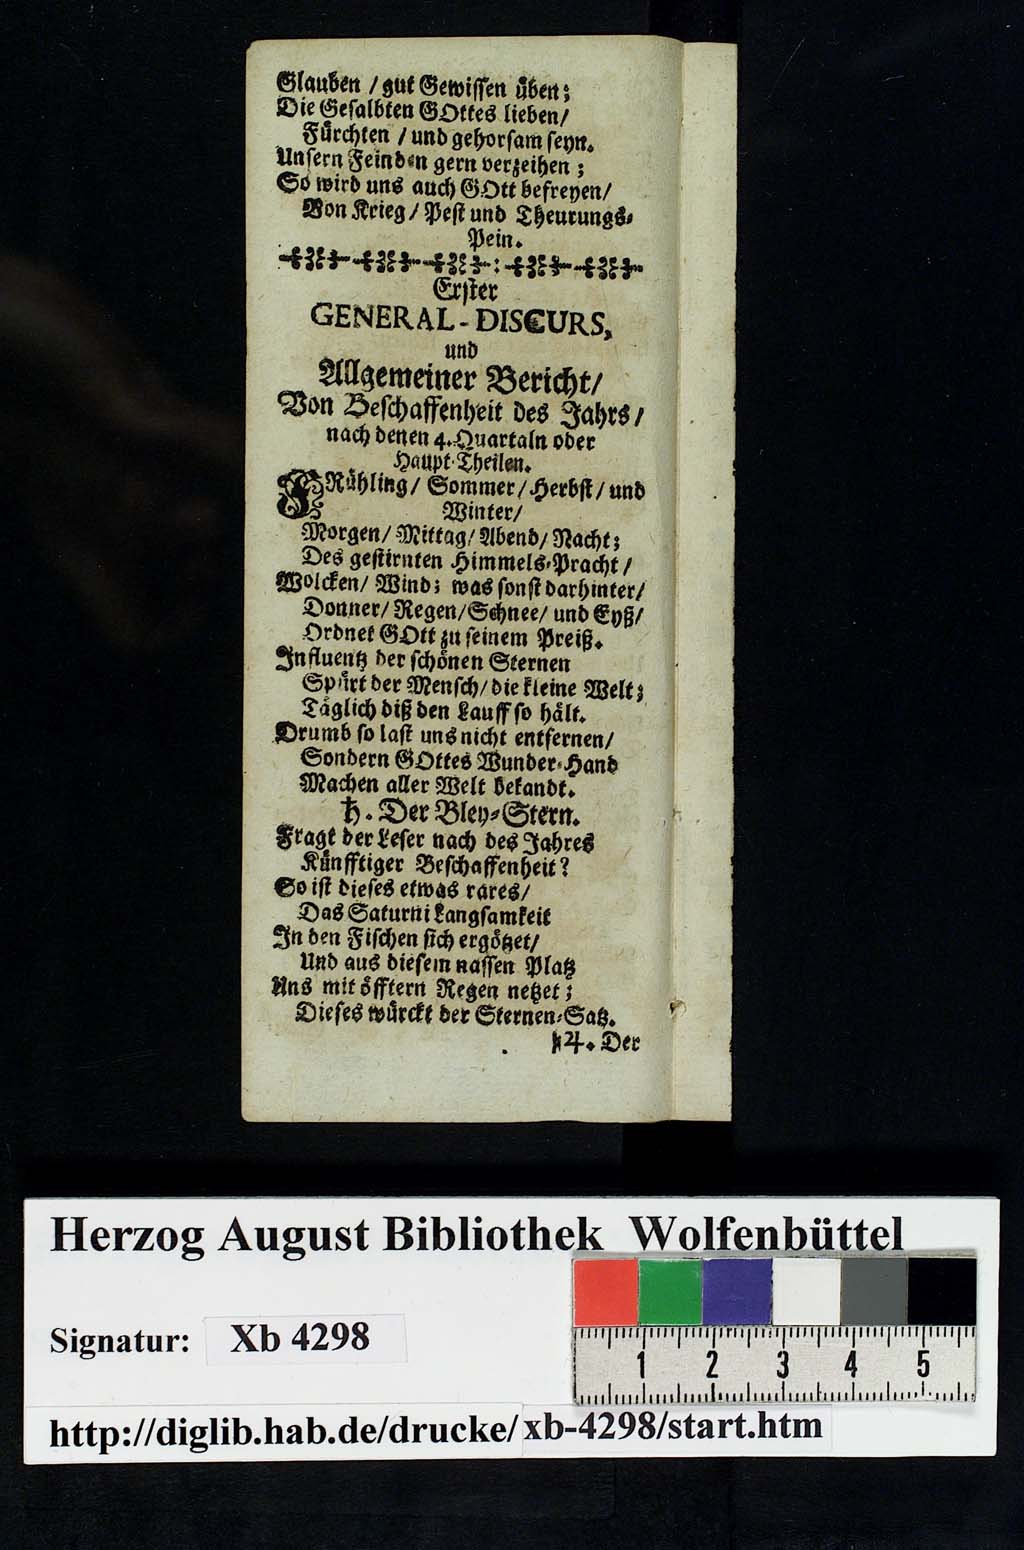 Glauben / gut Gewissen üben;
Die Gesalbten GOttes lieben/
Fürchten / und gehorsam seyn.
Unsern Feinden gern verzeihen;
So wird uns auch GOtt befreyen/
Von Krieg/ Pest und Theurungs-
Pein.
Erster
GENERAL-DISCURS,
und
Allgemeiner Bericht/
Von Beschaffenheit des Jahrs/
nach denen 4. Quartaln oder
Haupt-Theilen.
FRühling/ Sommer/ Herbst/ und
Winter/
Morgen/ Mittag/ Abend/ Nacht;
Des gestirnten Himmels-Pracht/
Wolcken/ Wind; was sonst darhinter/
Donner/ Regen/ Schnee/ und Eyß/
Ordnet GOtt zu seinem Preiß.
Influentz der schönen Sternen
Spürt der Mensch/ die kleine Welt;
Täglich diß den Lauff so hält.
Drumb so last uns nicht entfernen/
Sondern GOttes Wunder-Hand
Machen aller Welt bekandt.
♄. Der Bley-Stern.
Fragt der Leser nach des Jahres
Künfftiger Beschaffenheit?
So ist dieses etwas rares/
Das Saturni Langsamkeit
In den Fischen sich ergötzet/
Und aus diesem nassen Platz
Uns mit öfftern Regen netzet;
Dieses würckt der Sternen-Satz.
♃. Der
Herzog August Bibliothek Wolfenbüttel
Signatur: Xb 4298
1 2 3 4 5
http://diglib.hab.de/drucke/xb-4298/start.htm